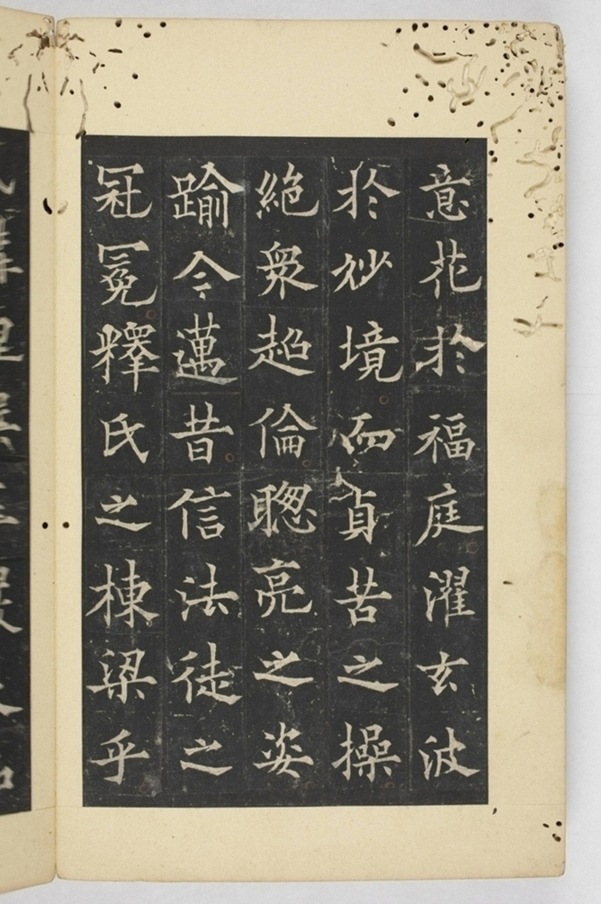 意花於福庭濯玄波
於妙境而貞苦之操
絶衆超倫聰亮之姿
踰今邁昔信法徒之
冠冕釋氏之棟梁乎